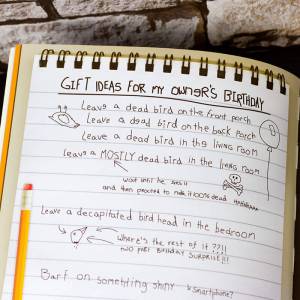 GIFT IDEAS FOR MY OWNER'S BIRTHDAY
Leave a dead bird on the front porch
Leave a dead bird on the back porch
Leave a dead bird in the living room
Leave a MOSTLY dead bird in the living room
wait until she sees it
and then proceed to make it 100% dead
Leave a decapitated bird head in the bedroom
Where's the rest of it??!!
TWO PART BIRTHDAY SURPRISE!!!
Barf on something shiny
smartphone?